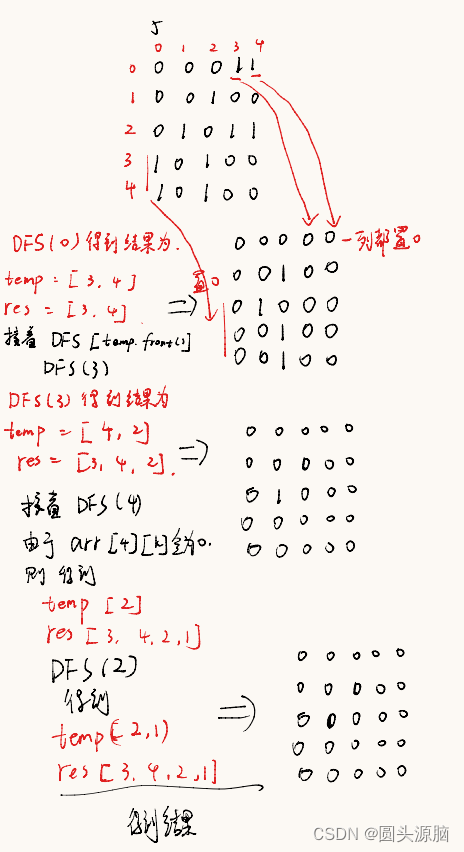 5
0 1 2 3 4
0 0 0 0 1 1
1 0 0 1 0 0
2 0 1 0 1 1
3 1 0 1 0 0
4 1 0 1 0 0
DFS(0)得到结果为.
temp = [3,4]
res = [3,4]
接着 DFS [temp.front()]
DFS(3)
置0
⇒
0 0 0 0 0 一列都置0
0 0 1 0 0
0 1 0 0 0
0 0 1 0 0
0 0 1 0 0
DFS(3)得到结果为
temp = [4,2]
res = [3,4,2].
⇒
0 0 0 0 0
0 0 0 0 0
0 1 0 0 0
0 0 0 0 0
0 0 0 0 0
接着 DFS(4)
由于 arr[4][k]全为0.
则 得到
temp [2]
res [3, 4,2,1]
DFS(2)
得到
temp[2,1)
res [3,4,2,1]
⇒
0 0 0 0 0
0 0 0 0 0
0 0 0 0 0
0 0 0 0 0
0 0 0 0 0
得到结果
CSDN @圆头源脑